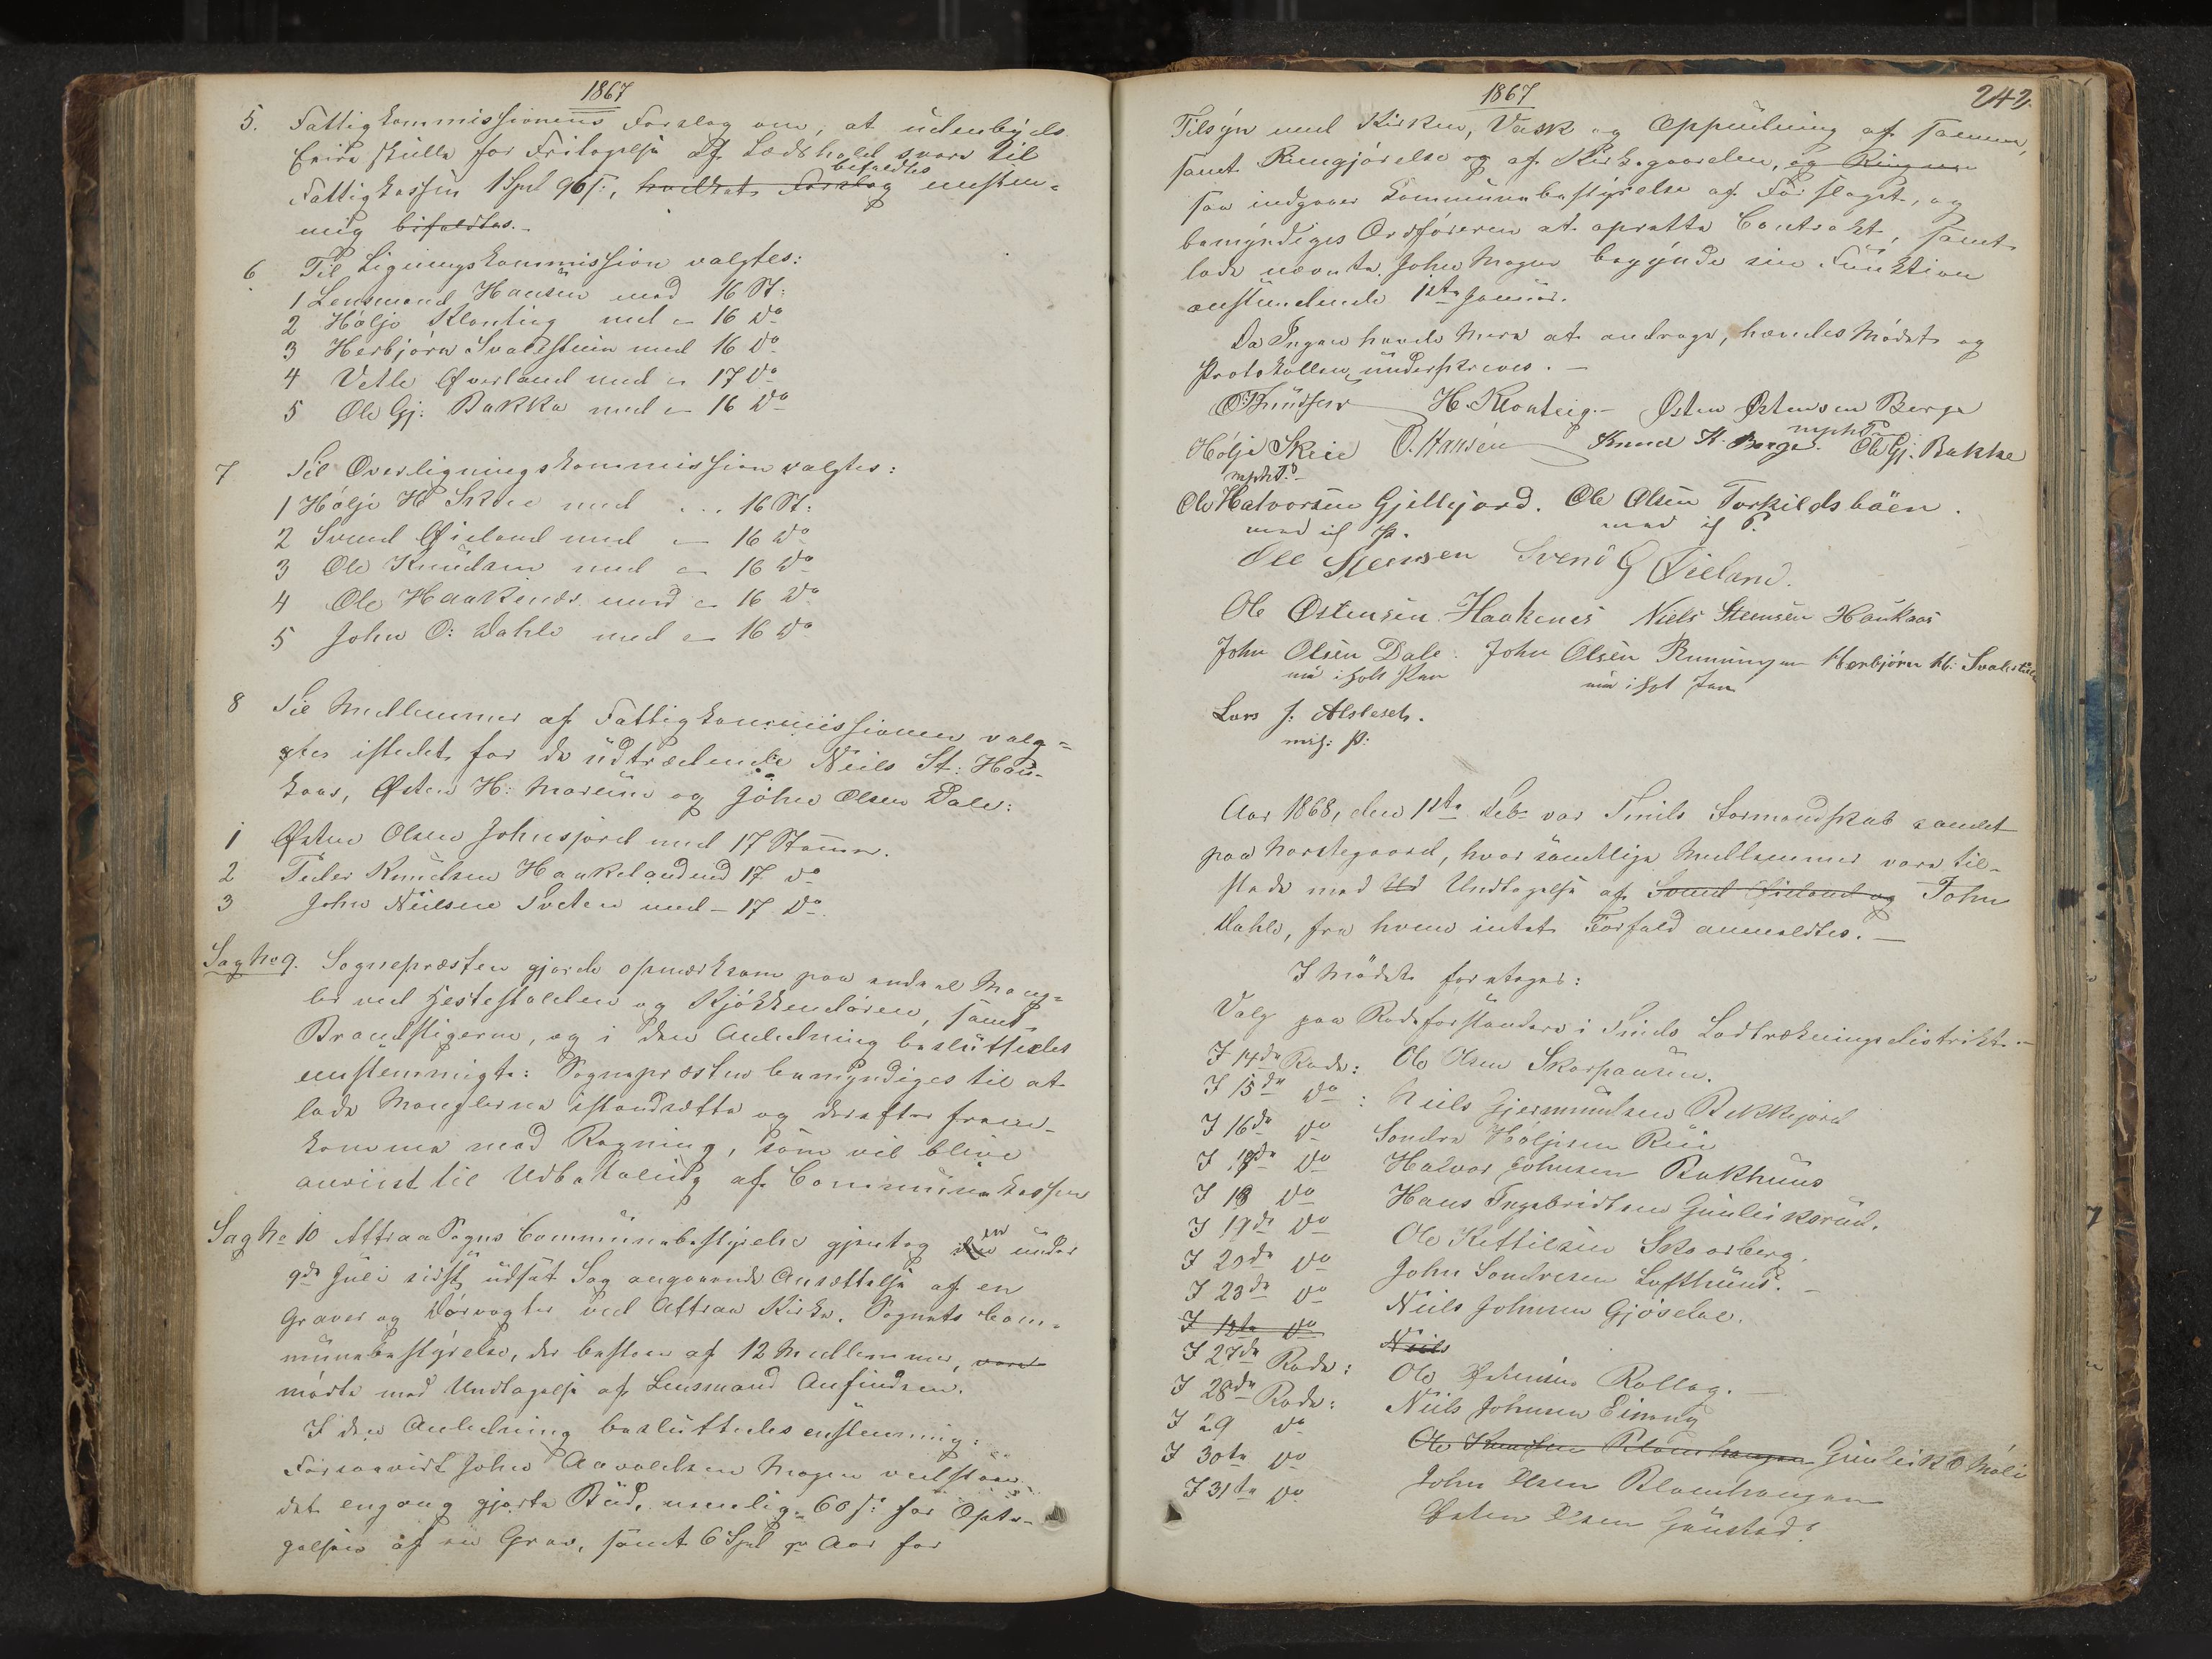 1867
5. Fattigkommissionens Forslag om, at udenbÿds
Eiere skulle for Fritagelse af Lædshold svare til
bifaldtes
Fattigkassen 1 Spd 96 s., hvilket Forslag enstem-
mig bifaldtes.-
6 Til Ligningskommission valgtes:
1 Lensmand Hansen med 16 St:
2 Hölje Klonteig med " 16 do
3 Herbjörn Svalestuen med 16 do
4 Vetle Øverland med " 17 do
5 Ole Gj: Bakke med " 16 do
7 Til Overligningskommission valgtes:
1 Hölje H Skeie med ... 16 St:
2 Svend Øieland med " 16 do
3 Ole Knudsen med " 16 do
4 Ole Haakenæs med " 16 do
5 John O: Dahle med " 16 do
8 Til Medlemmer af Fattigkommissionen valg=
gtes istedet for de udtrædende Niels St: Hau-
kaas, Østen H: Mareim og John Olsen Dale:
1 Østen Olsen Johnsjord med 17 Stemmer.
2 Peder Knudsen Haukeland med 17 do
3 John Nielsen Sveten med - 17 do
Sag No 9. Sognepræsten gjorde opmærksom paa endeel Mang-
ler ved Hestestalden og Kjökkendören, samt
Brandstigerne, og i den Anledning besluttedes
enstemmigt: Sognepræsten bemyndiges til at
lade Manglerne istandsætte og derefter frem-
komme med Regning, som vil blive
anviist til Udbetaling af Communekassen
Sag No 10 Attraa Sogns Communebestyrelse gjentog den en under
9de Juli sidst udsat Sag angaaende Ansættelse af en
Graver og Dörvogter ved Attraa Kirke. Sognets Com-
munebestÿrelse, der bestaar af 12 Medlemmer, vare
mödte med Undtagelse af Lensmand Anfindsen.
I den Anledning besluttedes enstemmig:
Forsaavidt John Aavoldsen Mogen vedstaar
det engang gjorte Bud, nemlig 60 s: for Opta-
gelsen af en Grav, samt 6 Spd pr Aar for
1867
242.
Tilsÿn med Kirken, Vask og Oppudsning af samme,
samt Rengjörelse og af Kirkegaarden, og Ringnin
saa indgaaer Communebestÿrelse af Forslaget, og
bemÿndiges Ordföreren at oprette Contrakt, samt
lade nævnte John Mogen begÿnde sin Funktion
anstundende 1ste Januar.
Da Ingen havde Mere at andrage, hævedes Mödet og
Protokollen underskreves. -
O Knudsen H. Klonteig.- Østen Østensen Berge
Hölje Skeie O. Hansen Knud K. Berge. mphP Ole Gj. Bakke
mphP.
Ole Halvorsen Gjellejord. Ole Olsen Torkildsbäen.
med if P. med if P.
Ole Steensen Svend G Øieland.
Ole Østensen Haakenes Niels Steensen Haukaas
John Olsen Dale. John Olsen Runningen Herbjörn H: Svalestuen
Lars J:
Aar 1868, den 1ste Feb. var Tinds Formandskab samlet
paa Mærstegaard, hvor samtlige Medlemmer vare til-
stede med Ud Undtagelse af Svend Øieland og John
Dahle, fra hvem intet Forfald anmeldtes. -
I Mödet foretoges:
Valg paa Rodeforstandere i Tinds Lodtrækningsdistrikt.-
I 14de Rode: Ole Olsen
I 15de do : Niels Gjermundsen Bekkejord
I 16de do Sondre Höljesen Rue
I 17de do Halvor Johnsen Bakhuus
I 18 do Hans Ingebridtsen Gunleiksrud.
I 19de do Ole Kittilsen Skaarberg.
I 20de do John Sondresen Lofthuus. -
I 23de do Niels Johnsen Gjösdal.
I 12te do Niels
I 27de Rode: Ole Østensen Rollag. -
I 28de Rode: Niels Johnsen Einung
I 29 do Ole Knudsen Gunleik O Mæli
I 30te do John Olsen Blomhaugen
I 31te do Østen Olsen Gaustad.